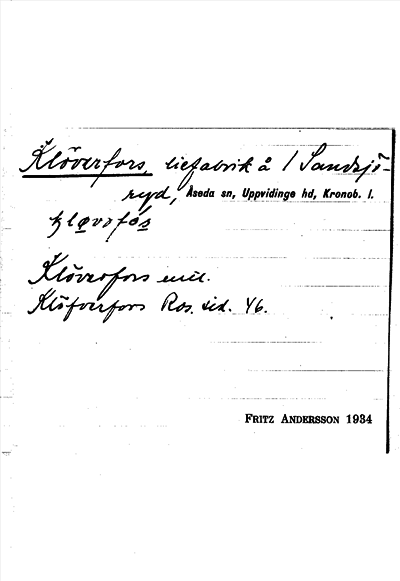 Klöverfors, liefabrik å 1 Sandsjö-
ryd, Åseda sn, Uppvidinge hd, Kronob. l.
Klöverfors enl.
Klöfverfors Ros. sid. 46.
FRITZ ANDERSSON 1934